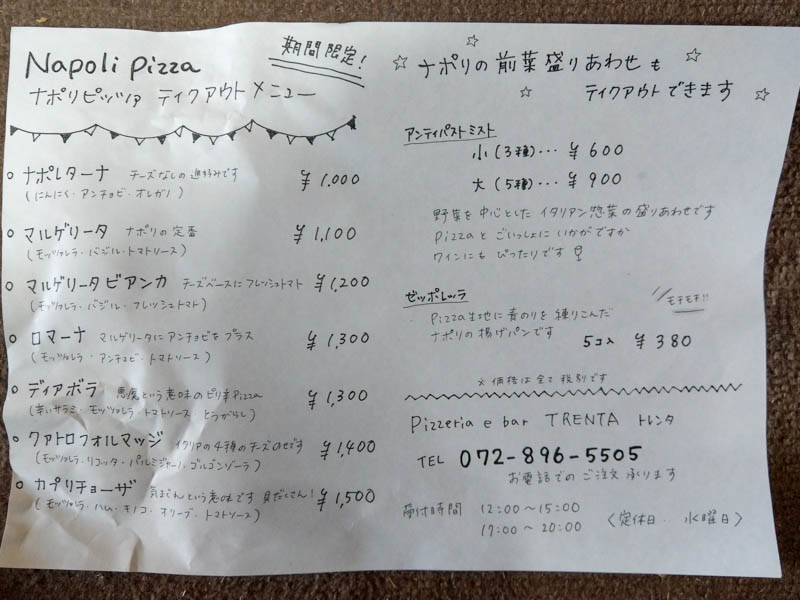 Napoli Pizza
期間限定!
ナポリピッツァ テイクアウトメニュー
ナポレターナ チーズなしの通好みです ¥1.000
(にんにく・アンチョビ・オレガノ)
マルゲリータ ナポリの定番 ¥1,100
(モッツァレラ・バジル・トマトソース)
マルゲリータ ビアンカ チーズベースにフレッシュトマト ¥1,200
(モッツァレラ・バジル・フレッシュトマト)
ロマーナ マルゲリータにアンチョビをプラス ¥1,300
(モッツァレラ・アンチョビ・トマトソース)
ディアボラ 悪魔という意味のピリ辛Pizza ¥1,300
(辛いサラミ・モッツァレラ トマトソース とうがらし)
クァトロフォルマッジ イタリアの4種のチーズのせです ¥1,400
(モッツァレラ・リコッタ・パルミジャーノ・ゴルゴンゾーラ)
カプリチョーザ 気まぐれという意味です 具だくさん! ¥1,500
(モッツァレラ・ハム・キノコ・オリーブ・トマトソース)
ナポリの前菜盛りあわせも
テイクアウトできます
アンティパストミスト
小(3種)･･･¥600
大(5種)･･･¥900
野菜を中心としたイタリアン惣菜の盛りあわせです
Pizzaとごいっしょにいかがですか
ワインにもぴったりです
ゼッポレッラ
モチモチ!!
Pizza生地に青のりを練りこんだ
ナポリの揚げパンです
5コ入 ¥380
※価格は全て税別です
Pizzeria e bar TRENTA トレンタ
TEL 072-896-5505
お電話でのご注文承ります
受付時間 12:00〜15:00
17:00〜20:00 〈定休日‥水曜日〉